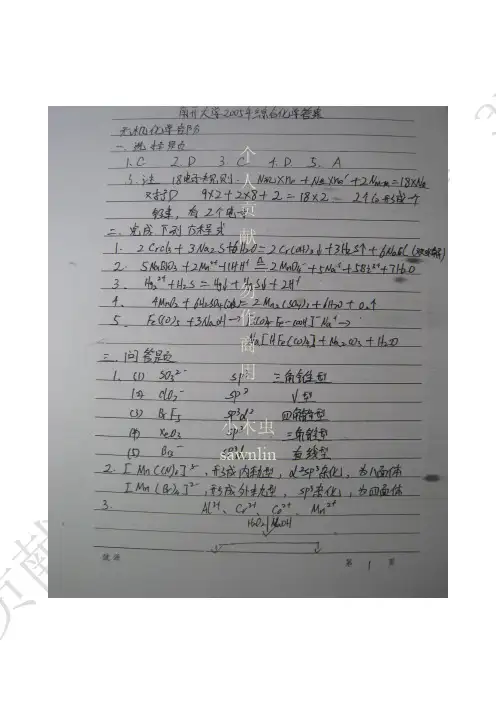 南开大学2005年综合化学答案
无机化学部分
一. 选择题
1. C 2. D 3. C 4. D 5. A
3. 注 18电子规则:
对于D 9×2+2×8+2=18×2 2个Co形成一个
键, 有2个电子
二. 完成下列方程式
1. 2CrCl3+3Na2S+6H2O=2Cr(OH)3↓+3H2S↑+6NaCl
2. 5NaBiO3+2Mn2++14H+ ≜ 2MnO4-+5Na++5Bi3++7H2O
3. Hg22++H2S=Hg↓+HgS↓+2H+
4. 4MnO2+6H2SO4(浓)=2Mn2(SO4)3+6H2O+O2↑
5. Fe(CO)5+3NaOH→[(CO)4Fe-COOH]-Na+→
Na[HFe(CO)4]+Na2CO3+H2O
三. 问答题
1. (1) SO32- sp3 三角锥型
(2) ClO2- sp3 V型
(3) BrF5 sp3d2 四角锥型
(4) XeO3 sp3 三角锥型
(5) 直线型
2. [Mn(CN)6] , 形成内轨型, d2sp3杂化, 为八面体
[Mn(Br)4]2-, 形成外轨型, sp3杂化, 为四面体
3. Al3+、Cr3+、Co2+、Mn2+
H2O2 NaOH
第 1 页
个人贡献勿作商用
小木虫
sawnlin
贡献